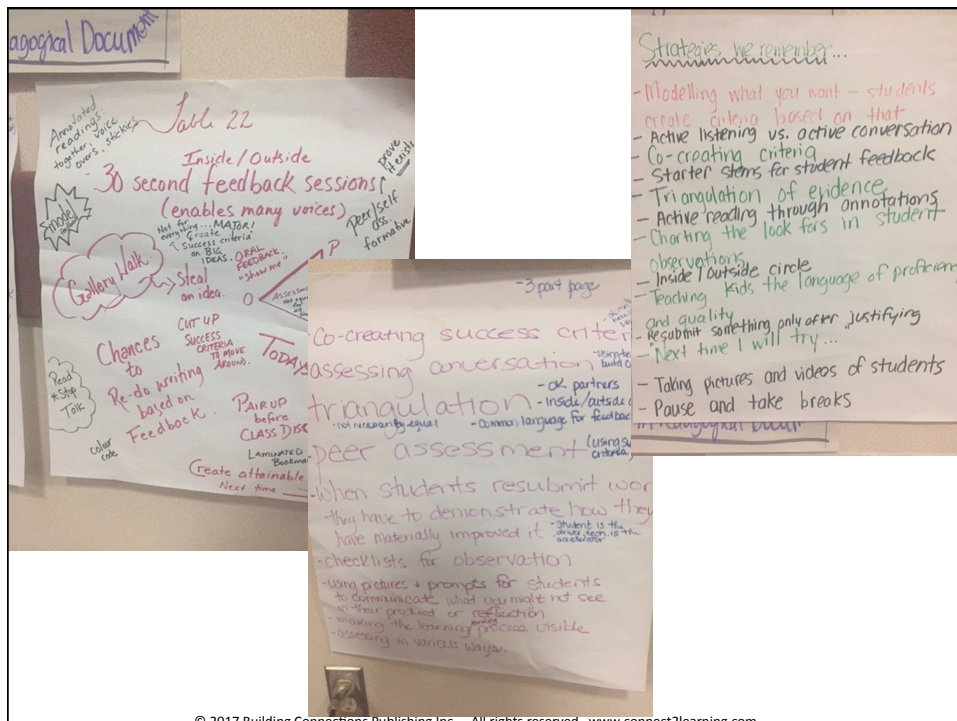 agogical Document
Annotated
readings
together, voice
overs, stickies
Table 22
Inside/Outside
30 second feedback sessions!
(enables many voices)
prove
it exists
peer/self
ass.
formative
model
Gallery Walk
Not for
everything...MAJOR!
Create
Success criteria
on BIG
IDEAS.
Steal
an idea.
ORAL
FEEDBACK.
"show me"
P
O
Chances
to
Re-do writing
based on
Feedback.
CUT UP
SUCCESS
CRITERIA
TO MOVE
AROUND.
TODAY
Read
*Stop
Talk
color
code
PAIR UP
before
CLASS DISC
LAMINATED
Bookma
Create attainable
Next time
-3 part page
-Co-creating success criter
assessing conversation
triangulation
-not necessarily equal
-ok partners
-Inside/outside
-common language for feedbac
peer assessment
(using su
criteria)
-When students resubmit wor
they have to demonstrate how they
have materially improved it
-student is the
driver, tech is the
accelerator
-checklists for observation
-using pictures + prompts for students
to communicate what you might not see
in their product or reflection
-making the learning process visible
-assessing in various ways.
Strategies we remember...
-Modelling what you want - students
create criteria based on that
- Active listening vs. active conversation
- Co-creating criteria
- Starter stems for student feedback
- Triangulation of evidence
- Active reading through annotations
- Charting the look fors in student
observations
- Inside/outside circle
- Teaching kids the language of proficien
and quality
- Resubmit something only after justifying
- Next time I will try...
- Taking pictures and videos of students
- Pause and take breaks
© 2017 Building Connections Publishing Inc. All rights reserved. www.connect2learning.com